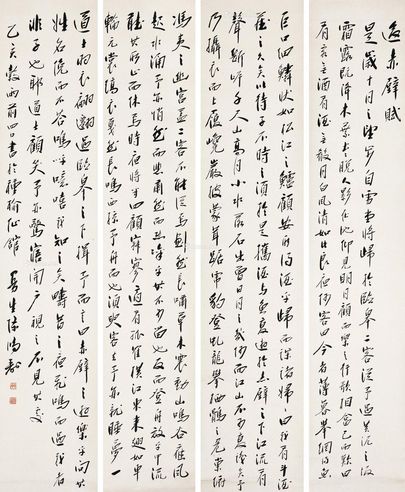 後赤壁賦
是歲十月之望步自雪堂將歸於臨皋二客從予過黃泥之坂
霜露既降木葉盡脫人影在地仰見明月顧而樂之行歌相答已而歎曰
有客無酒有酒無殽月白風清如此良夜何客曰今者薄暮舉網得魚
巨口細鱗狀如松江之鱸顧安所得酒乎歸而謀諸婦婦曰我有斗酒
藏之久矣以待子不時之須於是攜酒與魚復遊於赤壁之下江流有
聲斷岸千尺山高月小水落石出曾日月之幾何而江山不可復識矣予
乃攝衣而上履巉巖披蒙茸踞虎豹登虬龍攀棲鶻之危巢俯
馮夷之幽宮蓋二客不能從焉劃然長嘯草木震動山鳴谷應風
起水涌予亦悄然而悲肅然而恐凜乎其不可留也反而登舟放乎中流
聽其所止而休焉時夜將半四顧寂寥適有孤鶴橫江東來翅如車
輪玄裳縞衣戛然長鳴掠予舟而西也須臾客去予亦就睡夢一
道士羽衣翩躚過臨皋之下揖予而言曰赤壁之遊樂乎問其
姓名俛而不答嗚呼噫嘻我知之矣疇昔之夜飛鳴而過我者
非子也耶道士顧笑予亦驚寤開戶視之不見其處
乙亥穀雨前四日書於種榆仙館 曼生陳鴻壽